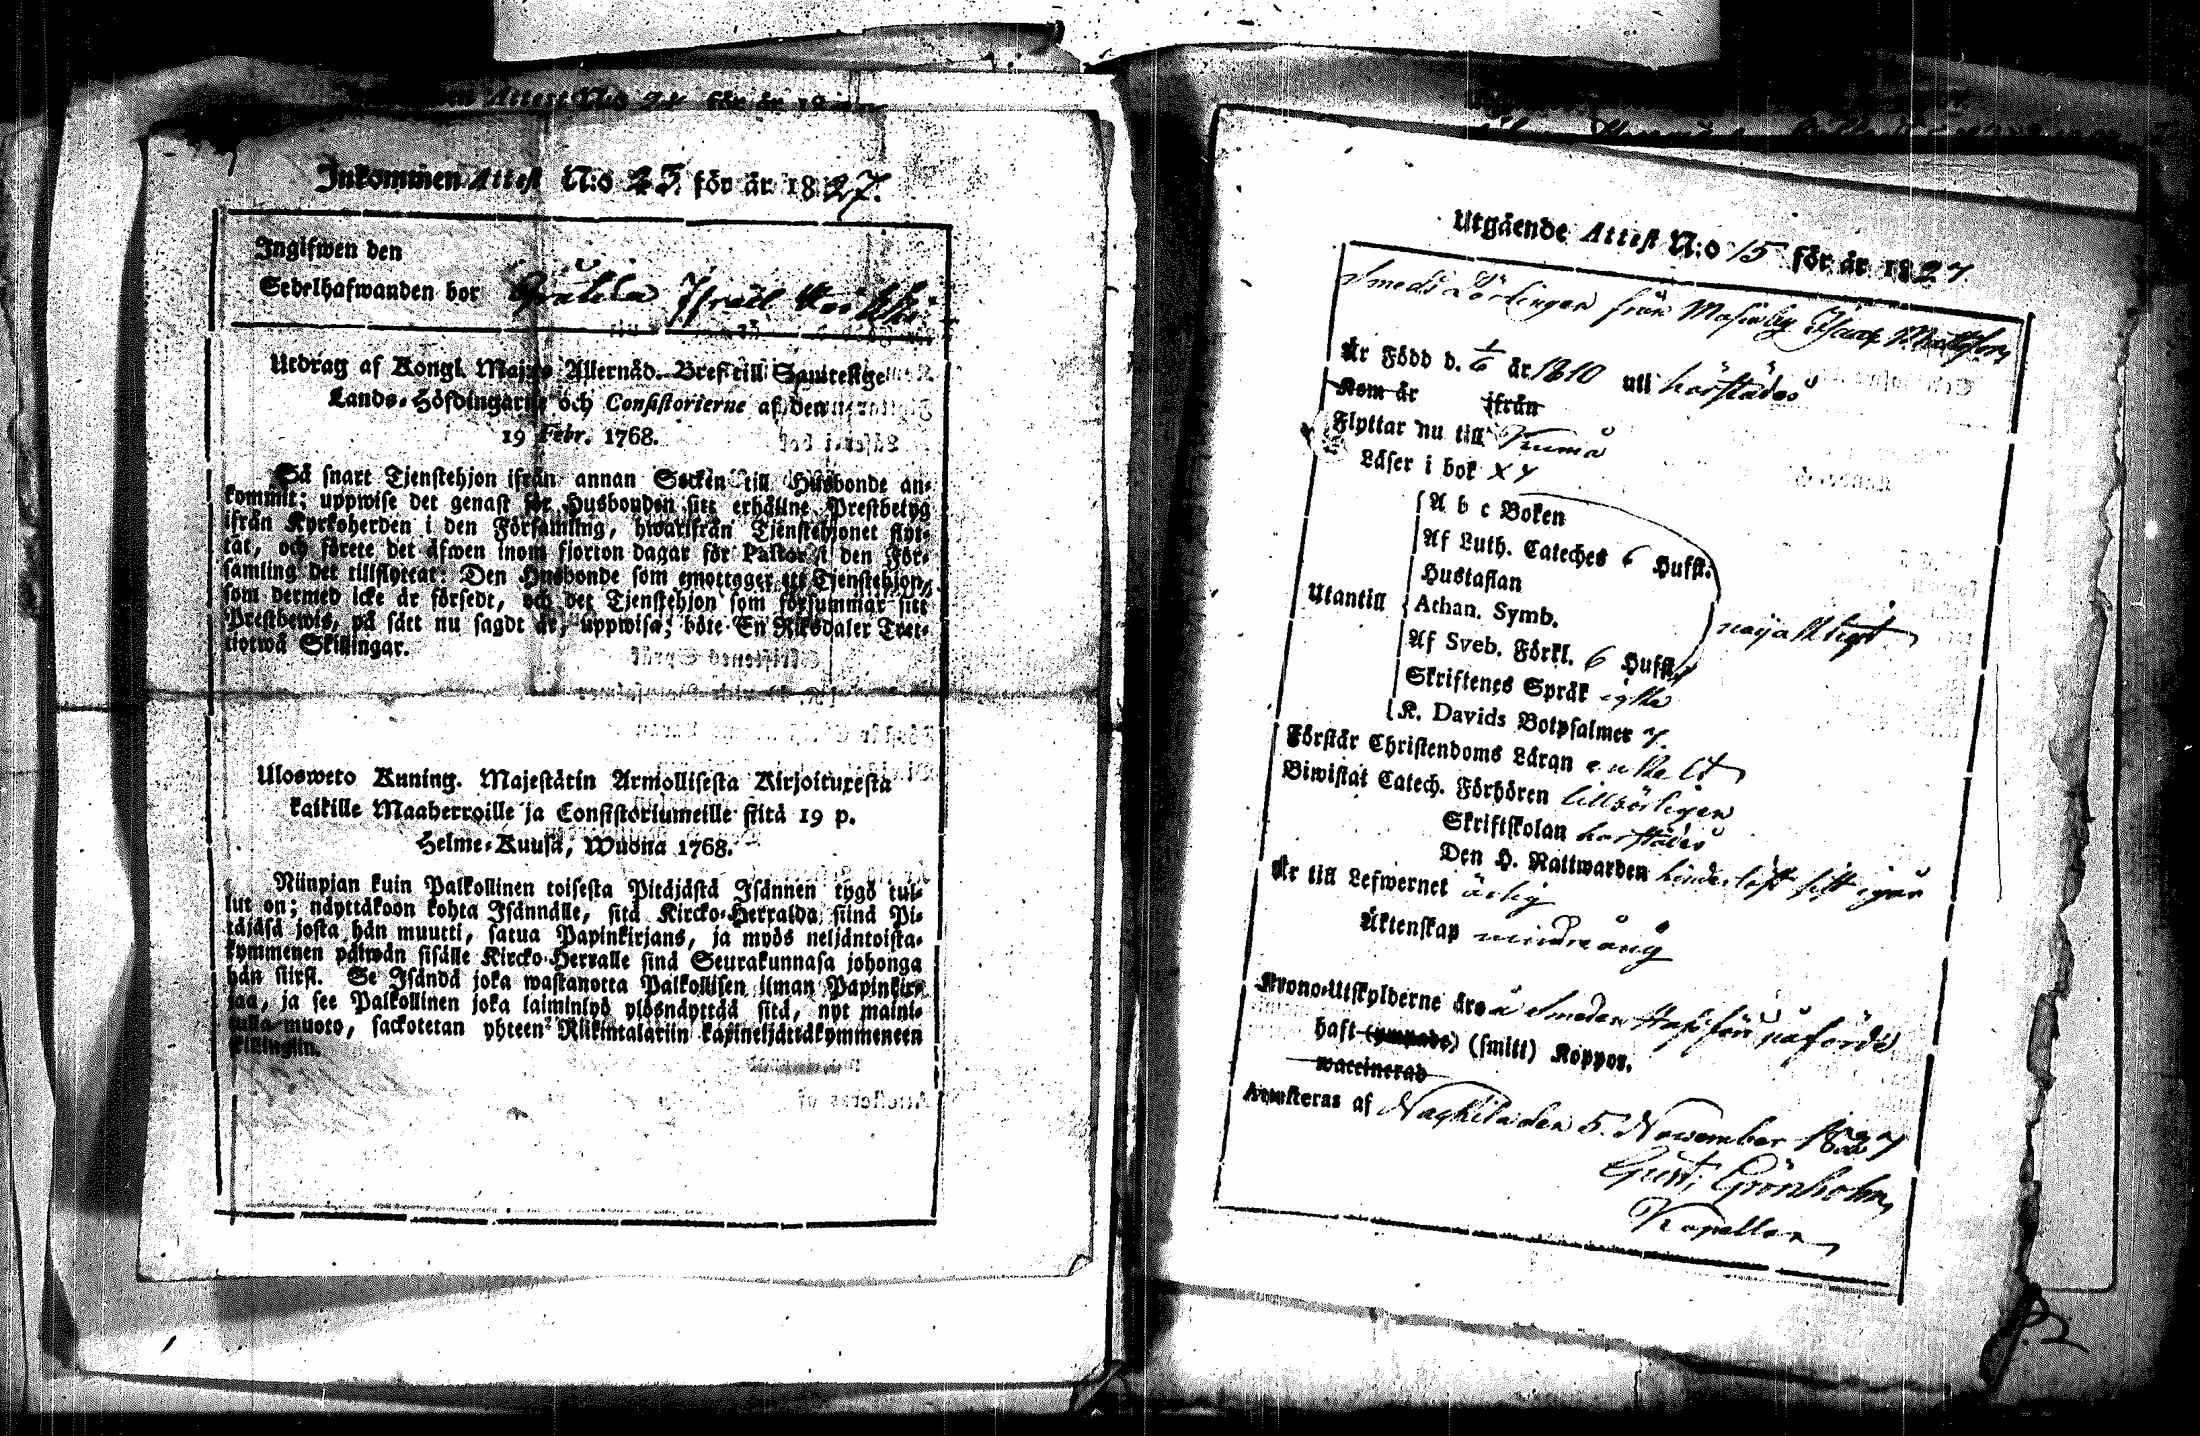 Attest N:o 24 för år 18
Inkommen Attest N:o 23. för år 1827.
Ingifwen den
Sedelhafwanden bor Israel
Utdrag af Kongl. Maj:ts Allernåd. Bref till Samtelige
Lands-Höfdingarne och Consistorierne af den
19 Febr. 1768.
Så snart Tjenstehjon ifrån annan Socken till Husbonde an-
kommit; uppwise det genast för Husbonden sitt erhållne Prestbetyg
ifrån Kyrkoherden i den Församling, hwarifrån Tjenstehjonet flyt-
tat, och förete det äfwen inom fjorton dagar för Pastor i den För-
samling det tillflyttat: Den Husbonde som emottager ett Tjenstehjon,
som dermed icke är försedt, och det Tjenstehjon som försummar sitt
Prestbewis, på sätt nu sagdt är, uppwisa; böte En Riksdaler Tret-
tiotwå Skillingar.
Ulosweto Kuning. Majestätin Armollisesta Kirjoituxesta
kaikille Maaherroille ja Consistoriumeille siitä 19 p.
Helme-Kuusa, Wuona 1768.
Niinpian kuin Palkollinen toisesta Pitäjästä Isännen tygö tul-
lut on; näyttäköön kohta Isännälle, sitä Kircko-Herralda siinä Pi-
täjäsä josta hän muutti, satua Papinkirjans, ja myös neljäntoista-
kymmenen päiwän sisälle Kircko-Herralle sinä Seurakunnasa johonga
hän siirsi. Se Isändä joka wastanotta Palkollisen ilman Papinkir-
jaa, ja see Palkollinen joka laiminlyö ylösnäyttää sitä, nyt maini-
tulla muoto, sackotetan yhteen Riikintalariin kaxineljättäkymmeneen
killingiin.
Utgående Attest N:o 15 för år 1827.
Smeds Lärlingen från Masuby Isaac Mattsson
Är Född d. 1/6 år 1810 uti härstädes
Kom år ifrån
Flyttar nu till Kumo
Läser i bok x y
A b c Boken
Af Luth. Cateches 6 Hufst.
Hustaflan
Utantill Athan. Symb. nöjaktigt
Af Sveb. Förkl. 6 Hufst.
Skriftenes Språk
K. Davids Botpsalmer 7.
Förstår Christendoms Läran enkelt
Biwistat Catech. Förhören tillbörligen
Skriftskolan härstädes
Den H. Nattwarden
Är till Lefwernet ärlig
Äktenskap
Krono-Utskylderne äro å Smeden påförde
haft (ympade) (smitt) Koppor.
waccinerad
Attesteras af Naghila den 5. November 1827
Gust: Grönholm
Kapellan